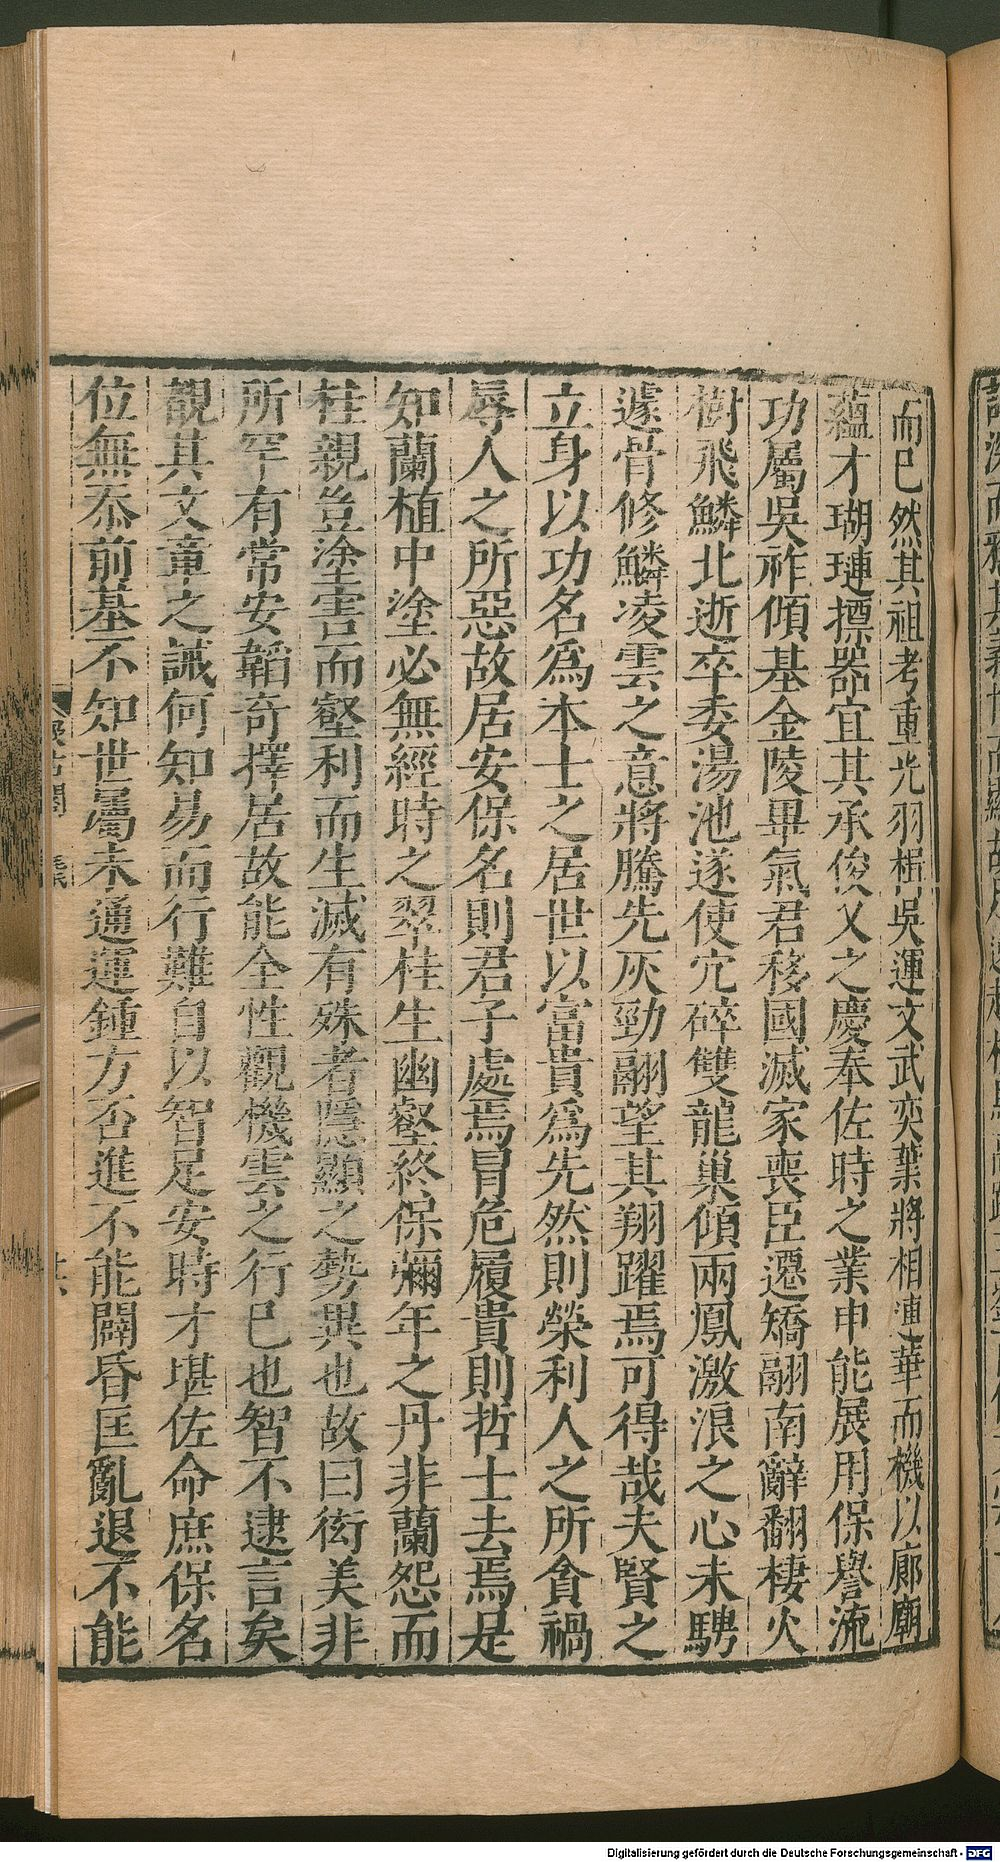 而已然其祖考重光羽楫吳運文武奕葉將相連華而機以廊廟
蘊才瑚璉摽器宜其承俊乂之慶奉佐時之業申能展用保譽流
功屬吳祚傾基金陵畢氣君移國滅家喪臣遷矯翮南辭翻棲火
樹飛鱗北逝卒委湯池遂使穴碎雙龍巢傾兩鳳激浪之心未騁
遽骨修鱗凌雲之意將騰先灰勁翮望其翔躍焉可得哉夫賢之
立身以功名爲本士之居世以富貴爲先然則榮利人之所貪禍
辱人之所惡故居安保名則君子處焉冒危履貴則哲士去焉是
知蘭植中塗必無經時之翠桂生幽壑終保彌年之丹非蘭怨而
桂親豈塗害而壑利而生滅有殊者隱顯之勢異也故曰衒美非
所罕有常安韜奇擇居故能全性觀機雲之行已也智不逮言矣
覩其文章之誡何知易而行難自以智足安時才堪佐命庶保名
位無忝前基不知世屬未通運鍾方否進不能闢昏匡亂退不能
Digitalisierung gefördert durch die Deutsche Forschungsgemeinschaft - DFG